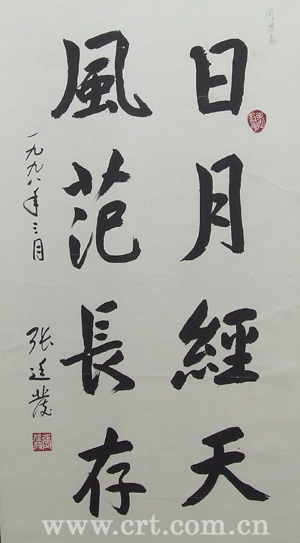 日月經天
風范長存
一九九八年三月
張廷發
www.crt.com.cn